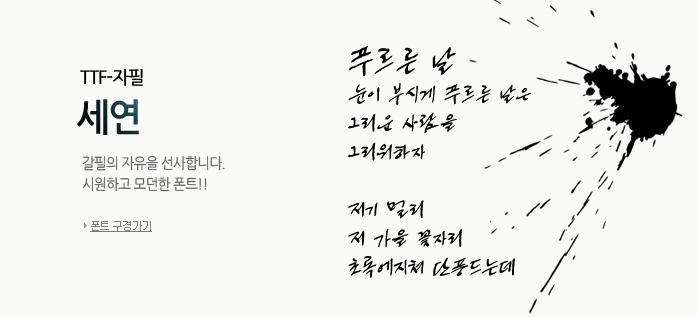 TTF-자필
세연
갈필의 자유을 선사합니다.
시원하고 모던한 폰트!!
폰트 구경가기
푸르른 날
눈이 부시게 푸르른 날은
그리운 사람을
그리워하자
저기 멀리
저 가을 꽃자리
초록에지쳐 단풍드는데